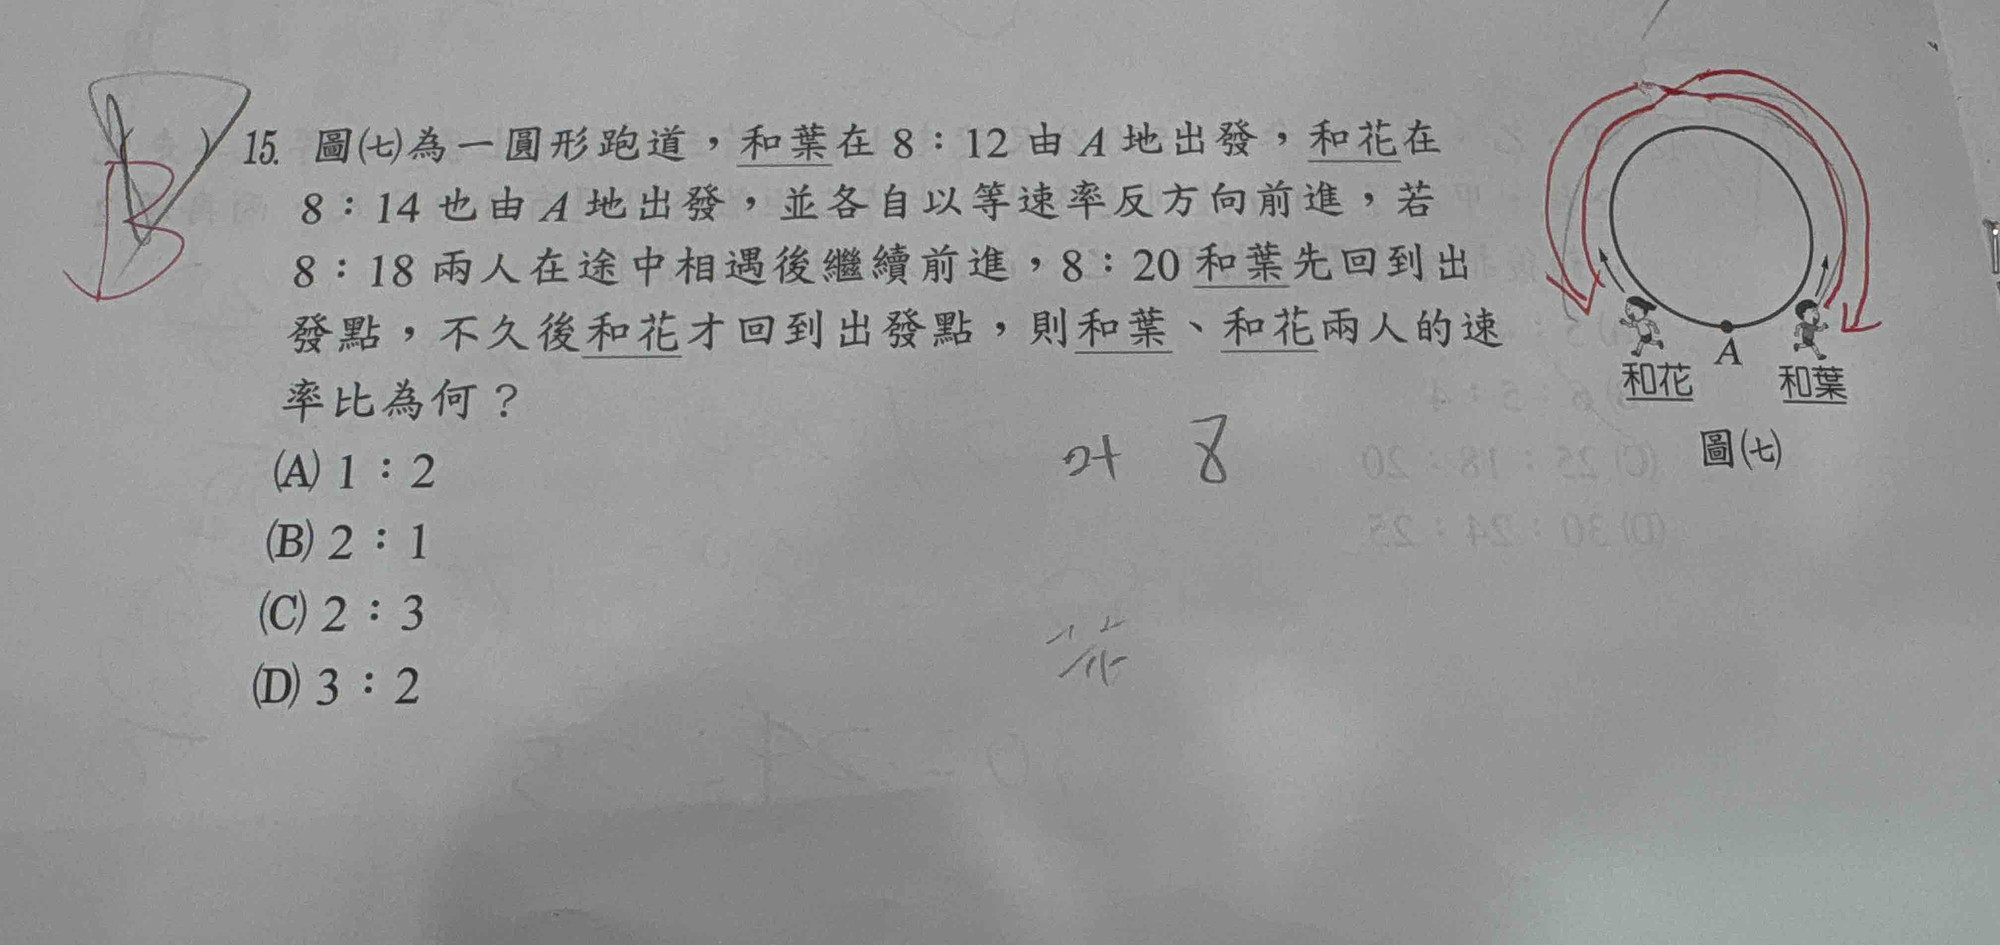 B
( ) 15. 圖(七)為一圓形跑道，和葉在 8：12 由 A 地出發，和花在
8：14 也由 A 地出發，並各自以等速率反方向前進，若
8：18 兩人在途中相遇後繼續前進，8：20 和葉先回到出
發點，不久後和花才回到出發點，則和葉、和花兩人的速
率比為何？
(A) 1：2
(B) 2：1
(C) 2：3
(D) 3：2
A
和花
和葉
圖(七)
8
花